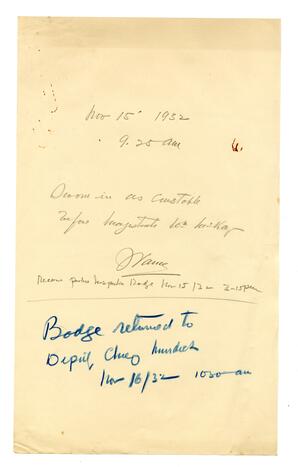 Nov 15 1932
9.25 am
Sworn in as Constable
Before Magistrate Wm McKay
Vance
Badge Nov 15/32 2-15 pm
Badge returned to
Deputy Chief Murdock
Nov 16/32 1030 am